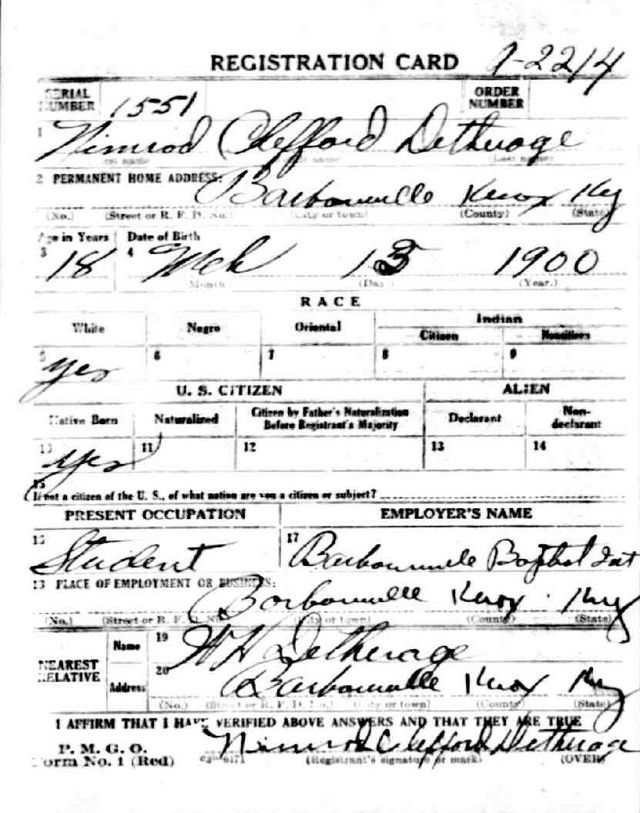 REGISTRATION CARD 9-2214
SERIAL NUMBER 1551 ORDER NUMBER
1 Nimrod Clefford Detherage
(First name) (Middle name) (Last name)
2 PERMANENT HOME ADDRESS: Barbourville Knox Ky
(No.) (Street or R. F. D. No.) (City or town) (County) (State)
Age in Years Date of Birth
3 18 4 Mch 13 1900
(Month) (Day) (Year.)
RACE
White Negro Oriental Indian
Citizen Noncitizen
5 Yes 6 7 8 9
U. S. CITIZEN ALIEN
Native Born Naturalized Citizen by Father's Naturalization Before Registrant's Majority Declarant Non-declarant
10 Yes 11 12 13 14
15
If not a citizen of the U. S., of what nation are you a citizen or subject?
PRESENT OCCUPATION EMPLOYER'S NAME
16 Student 17 Barbourville Baptist Inst
18 PLACE OF EMPLOYMENT OR BUSINESS:
Barbourville Knox Ky
(No.) (Street or R. F. D. No.) (City or town) (County) (State)
NEAREST RELATIVE Name 19 W H Detherage
Address 20 Barbourville Knox Ky
(No.) (Street or R. F. D. No.) (City or town) (County) (State)
I AFFIRM THAT I HAVE VERIFIED ABOVE ANSWERS AND THAT THEY ARE TRUE
P. M. G. O.
Form No. 1 (Red) Nimrod Clefford Detherage
(Registrant's signature or mark) (OVER)